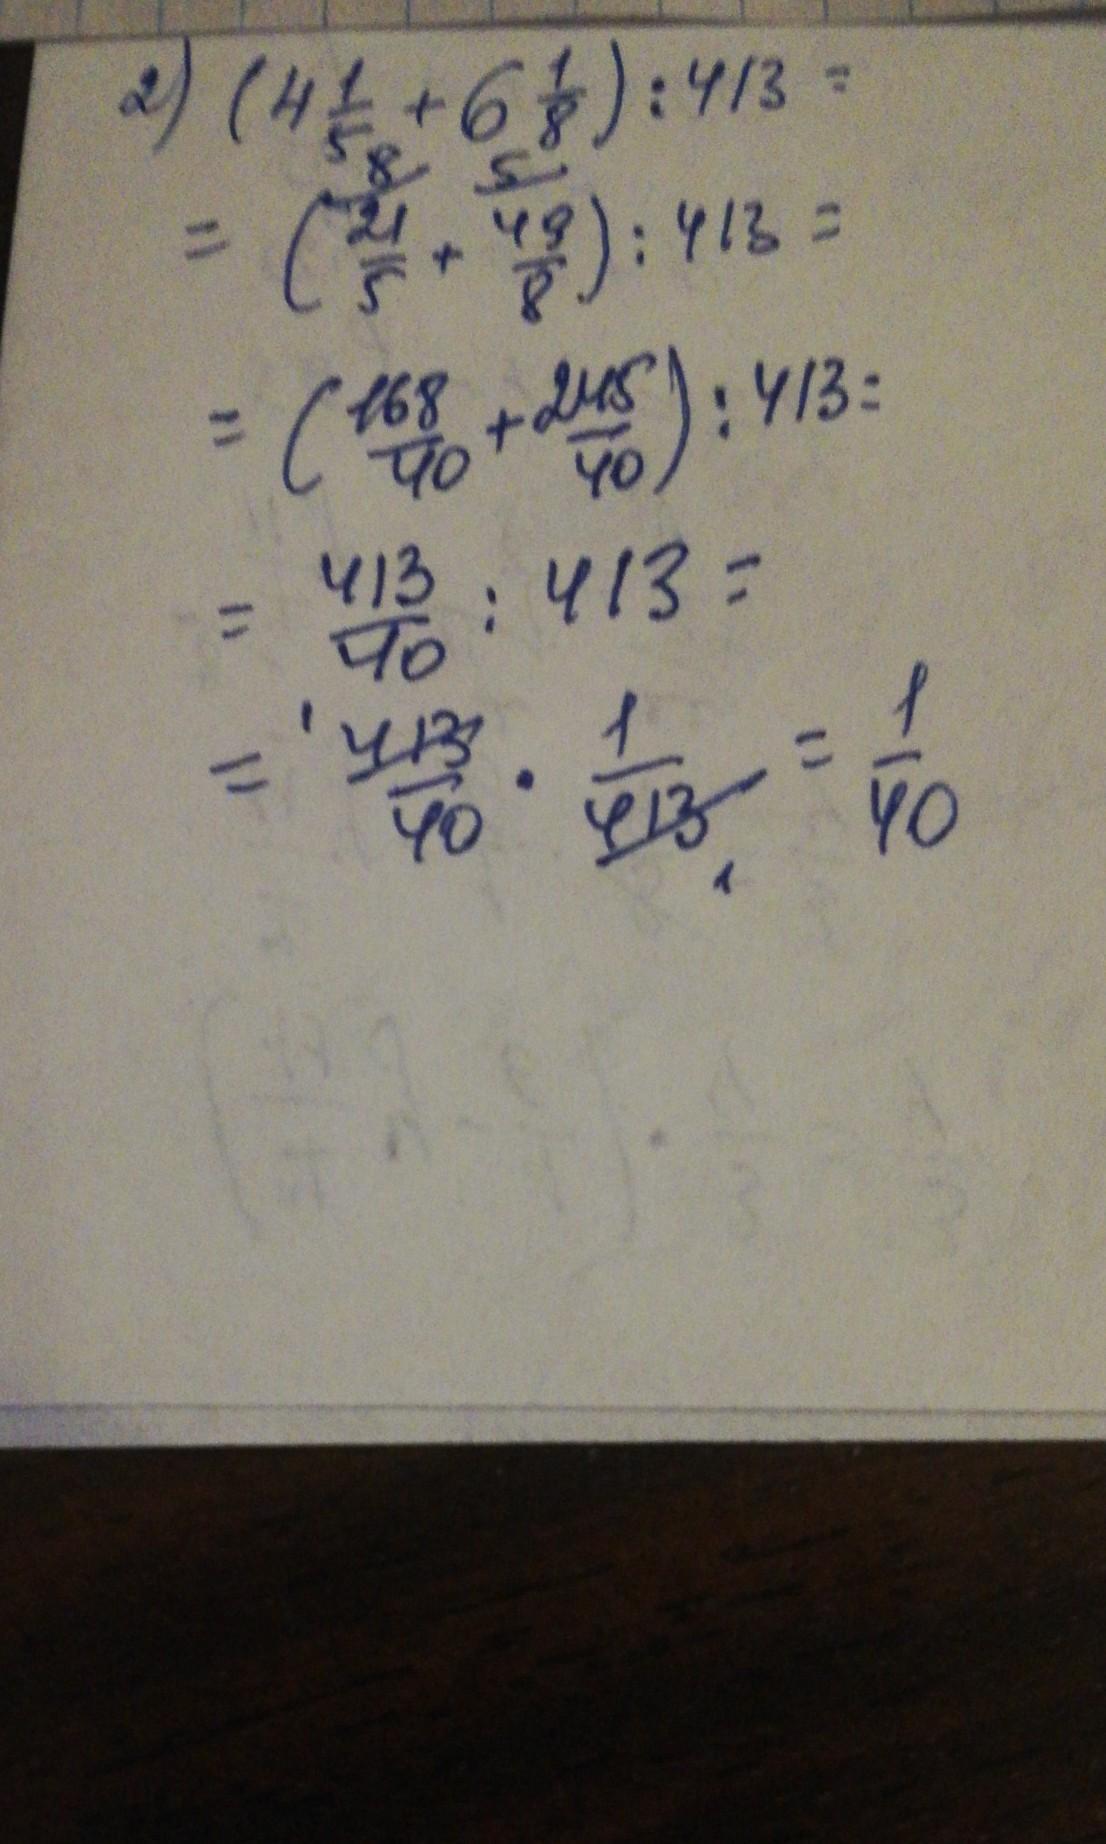 2) (4 1/5 + 6 1/8) : 413 =
8/ 5/
= (21/5 + 49/8) : 413 =
= (168/40 + 245/40) : 413 =
= 413/40 : 413 =
= 1 413/40 · 1/413 1 = 1/40